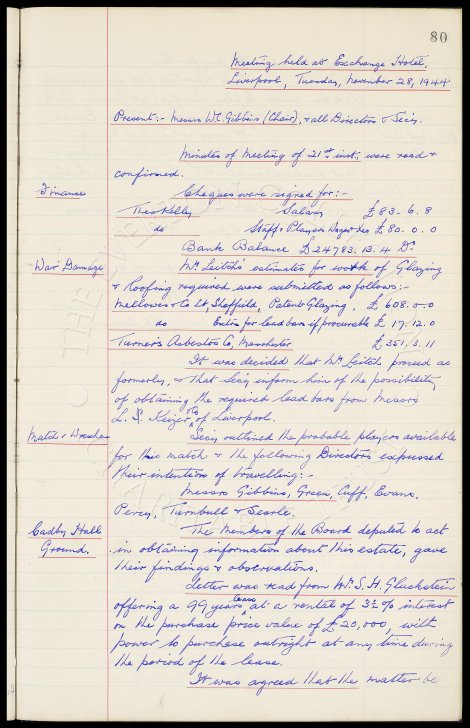 80
Meeting held at Exchange Hotel,
Liverpool, Tuesday, November 28, 1944
Present:- Messrs W.C. Gibbins (Chair), & all Directors & Secy.
Minutes of Meeting of 21st inst. were read &
confirmed.
Finance
Cheques were signed for:-
Theo Kelly Salary £83. 6. 8
do Staff & Players Wages £80. 0. 0
Bank Balance £24783. 13. 4 Dr
War Damage
Mr. Leitch's estimates for work of Glazing
& Roofing required were submitted as follows:-
Mellowes & Co Lt, Sheffield, Patent Glazing, £608. 0. 0
do Extra for lead bars if procurable £17. 12. 0
Turner's Asbestos Co, Manchester £351. 3. 11
It was decided that Mr Leitch proceed as
formerly, & that Secy inform him of the possibility
of obtaining the required lead bars from Messrs
L. S. Keizer & Co of Liverpool.
Match v Wrexham
Secy outlined the probable players available
for this match & the following Directors expressed
their intentions of travelling:-
Messrs Gibbins, Green, Cuff, Evans,
Percy, Turnbull & Searle.
Cadby Hall
Ground.
The Members of the Board deputed to act
in obtaining information about this estate, gave
their findings & observations.
Letter was read from Mr. S. H. Gluckstein
offering a 99 years lease, at a rental of 3½% interest
on the purchase price value of £20,000, with
power to purchase outright at any time during
the period of the lease.
It was agreed that the matter be